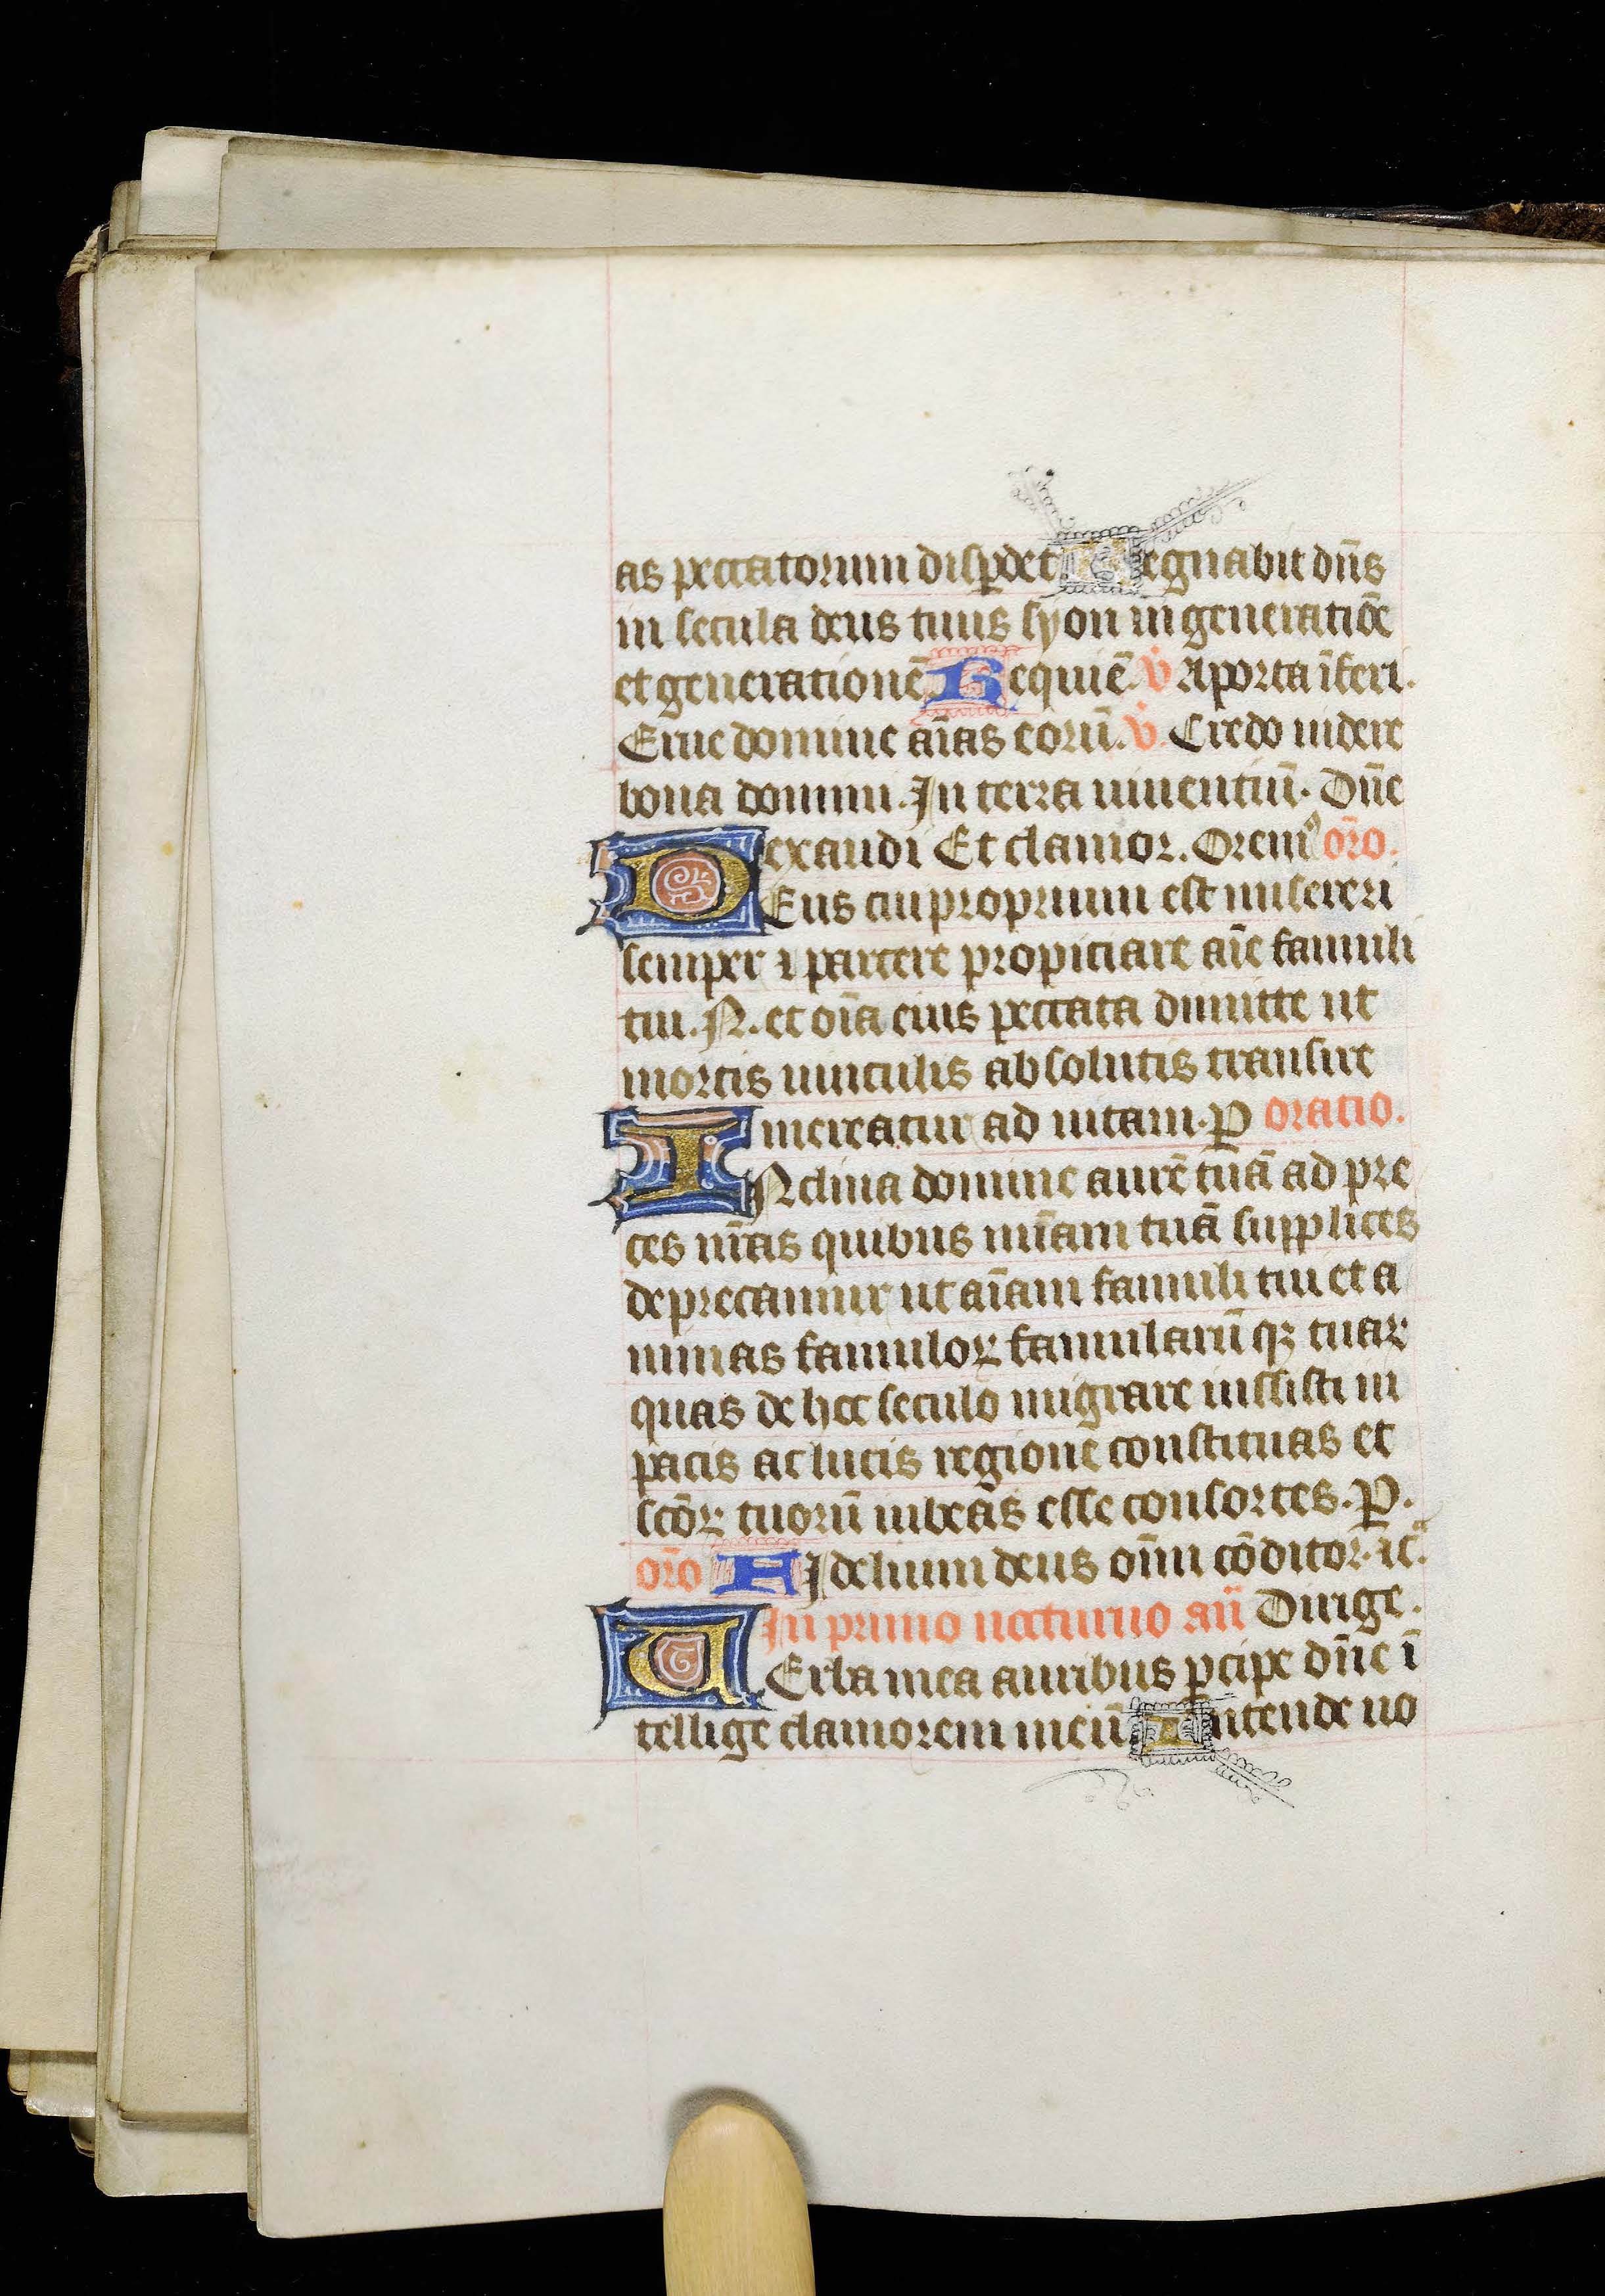 as peccatorum disꝑdet Regnabit dn̄s
in secula deus tuus syon in generatiōe
et generationē Requiē. v̄ A porta īferi.
Erue domine aīas eorū. v̄. Credo uidere
bona domini. In terra uiuentiū. Dn̄e
exaudi Et clamor. Oremꝰ oro̅.
DEus cui proprium est misereri
semper ⁊ parcere propiciare aīe famuli
tui. N. et oīa eius peccata dimitte ut
mortis uinculis absolutis transire
mereatur ad uitam. P oratio.
INclina domine aurē tuā ad pre
ces nr̄as quibus mīam tuā supplices
deprecamur ut aīam famuli tui et a
nimas famuloꝝ famularū qꝫ tuaꝝ
quas de hoc seculo migrare iussisti in
pacis ac lucis regione constituas et
scōꝝ tuorū iubeas esse consortes. P.
oro̅ FIdelium deus om̄i cōditor. ⁊cᵃ.
In primo nocturno an̄ Dirige.
UErba mea auribus ꝑcipe dn̄e ī
tellige clamorem meū Intende uo